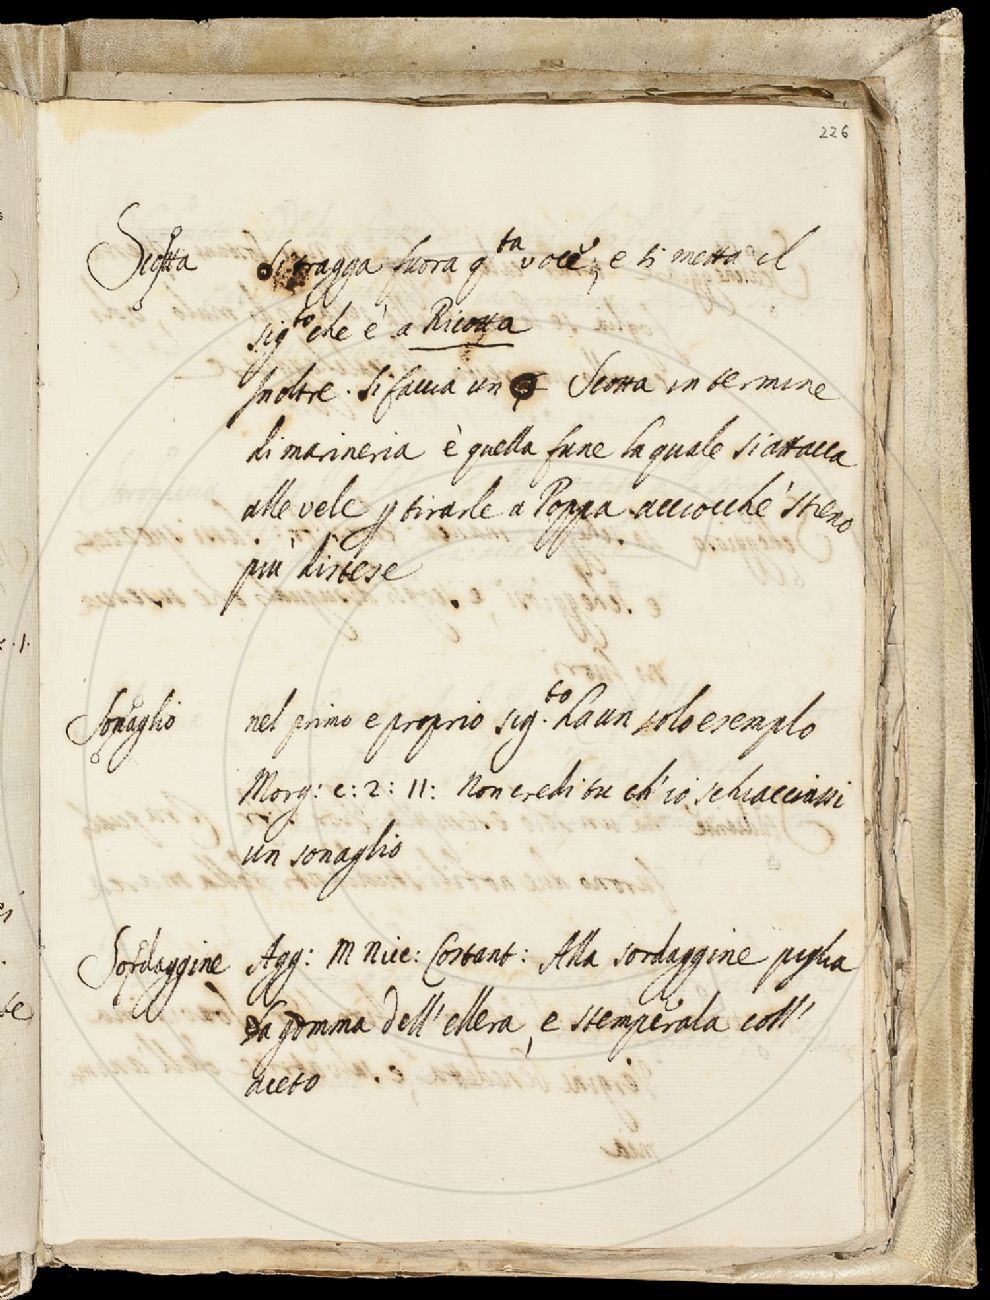 226
Scotta si tragga fuora q.ta voce, e si metta il
sig.to che è a Ricotta
Inoltre. Si faccia un § Scotta in termine
di marineria è quella fune la quale si attacca
alle vele p tirarle a Poppa acciocche' steno
più distese
Sonaglio nel primo e proprio sig.to ha un solo esemplo
Morg: c: 2: 11: Non credi tu ch' io schiacciassi
un sonaglio
Sordaggine Agg: M Nic: Costant: Alla sordaggine piglia
la gomma dell' ellera, e stemperala coll'
aceto